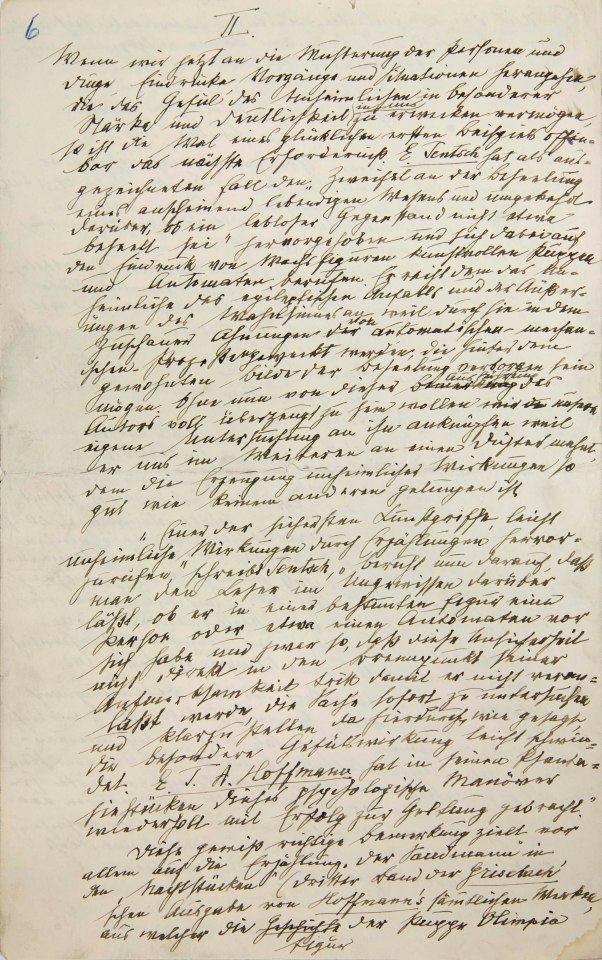 6
II.
Wenn wir jetzt an die Musterung der Personen und
Dinge, Eindrücke, Vorgänge und Situationen herangehen,
die das Gefül des Unheimlichen in besonderer
Stärke und Deutlichkeit in uns zu erwecken vermögen,
so ist die Wal eines glücklichen ersten Beispiels offen-
bar das nächste Erfordernis. E. Jentsch hat als aus-
gezeichneten Fall den „Zweifel an der Beseelung
eines anscheinend lebendigen Wesens und umgekehrt
darüber, ob ein lebloser Gegenstand nicht etwa
beseelt sei“ hervorgehoben und sich dabei auf
den Eindruck von Wachsfiguren, kunstvollen Puppen
und Automaten berufen. Er reiht dem das Un-
heimliche des epileptischen Anfalls und der Äußer-
ungen des Wahnsinns an, weil durch sie in dem
Zuschauer Ahnungen von automatischen – mechan-
ischen – Prozessen geweckt werden, die hinter dem
gewohnten Bilde der Beseelung verborgen sein
mögen. Ohne nun von dieser Ausführung des
Autors voll überzeugt zu sein, wollen wir unsere
eigene Untersuchung an ihn anknüpfen, weil
er uns im Weiteren an einen Dichter mahnt,
dem die Erzeugung unheimlicher Wirkungen so
gut wie keinem anderen gelungen ist.
„Einer der sichersten Kunstgriffe, leicht
unheimliche Wirkungen durch Erzählungen hervor-
zurufen,“ schreibt Jentsch, „beruht nun darauf, daß
man den Leser im Ungewissen darüber
läßt, ob er in einer bestimmten Figur eine
Person oder etwa einen Automaten vor
sich habe und zwar so, daß diese Unsicherheit
nicht direkt in den Brennpunkt seiner
Aufmerksamkeit tritt, damit er nicht veran-
laßt werde, die Sache sofort zu untersuchen
und klarzustellen, da hierdurch, wie gesagt,
die besondere Gefülswirkung leicht schwin-
det. E. T. A. Hoffmann hat in seinen Phanta-
siestücken dieses psychologische Manöver
wiederholt mit Erfolg zur Geltung gebracht.“
Diese gewiß richtige Bemerkung zielt vor
allem auf die Erzählung „Der Sandmann“ in
den „Nachtstücken“ (dritter Band der Grisebach-
schen Ausgabe von Hoffmann's sämtlichen Werken),
aus welcher die Geschichte der Puppe Olimpia
Figur